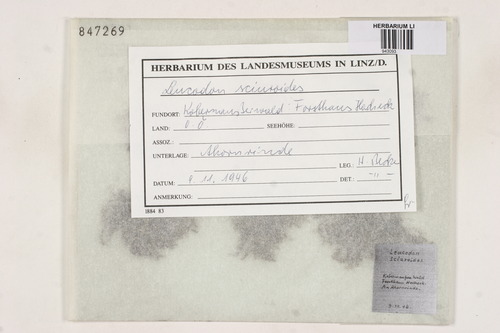 847269
HERBARIUM LI
HERBARIUM DES LANDESMUSEUMS IN LINZ/D.
Leucodon sciuroides
FUNDORT: Kobernausserwald Forsthaus
LAND: O.Ö
SEEHÖHE:
ASSOZ.:
UNTERLAGE: Ahornrinde
LEG.: H.
DATUM: 11.1946
DET.: -"-
ANMERKUNG:
1884 83
Leucodon
sciuroides
Forsthaus